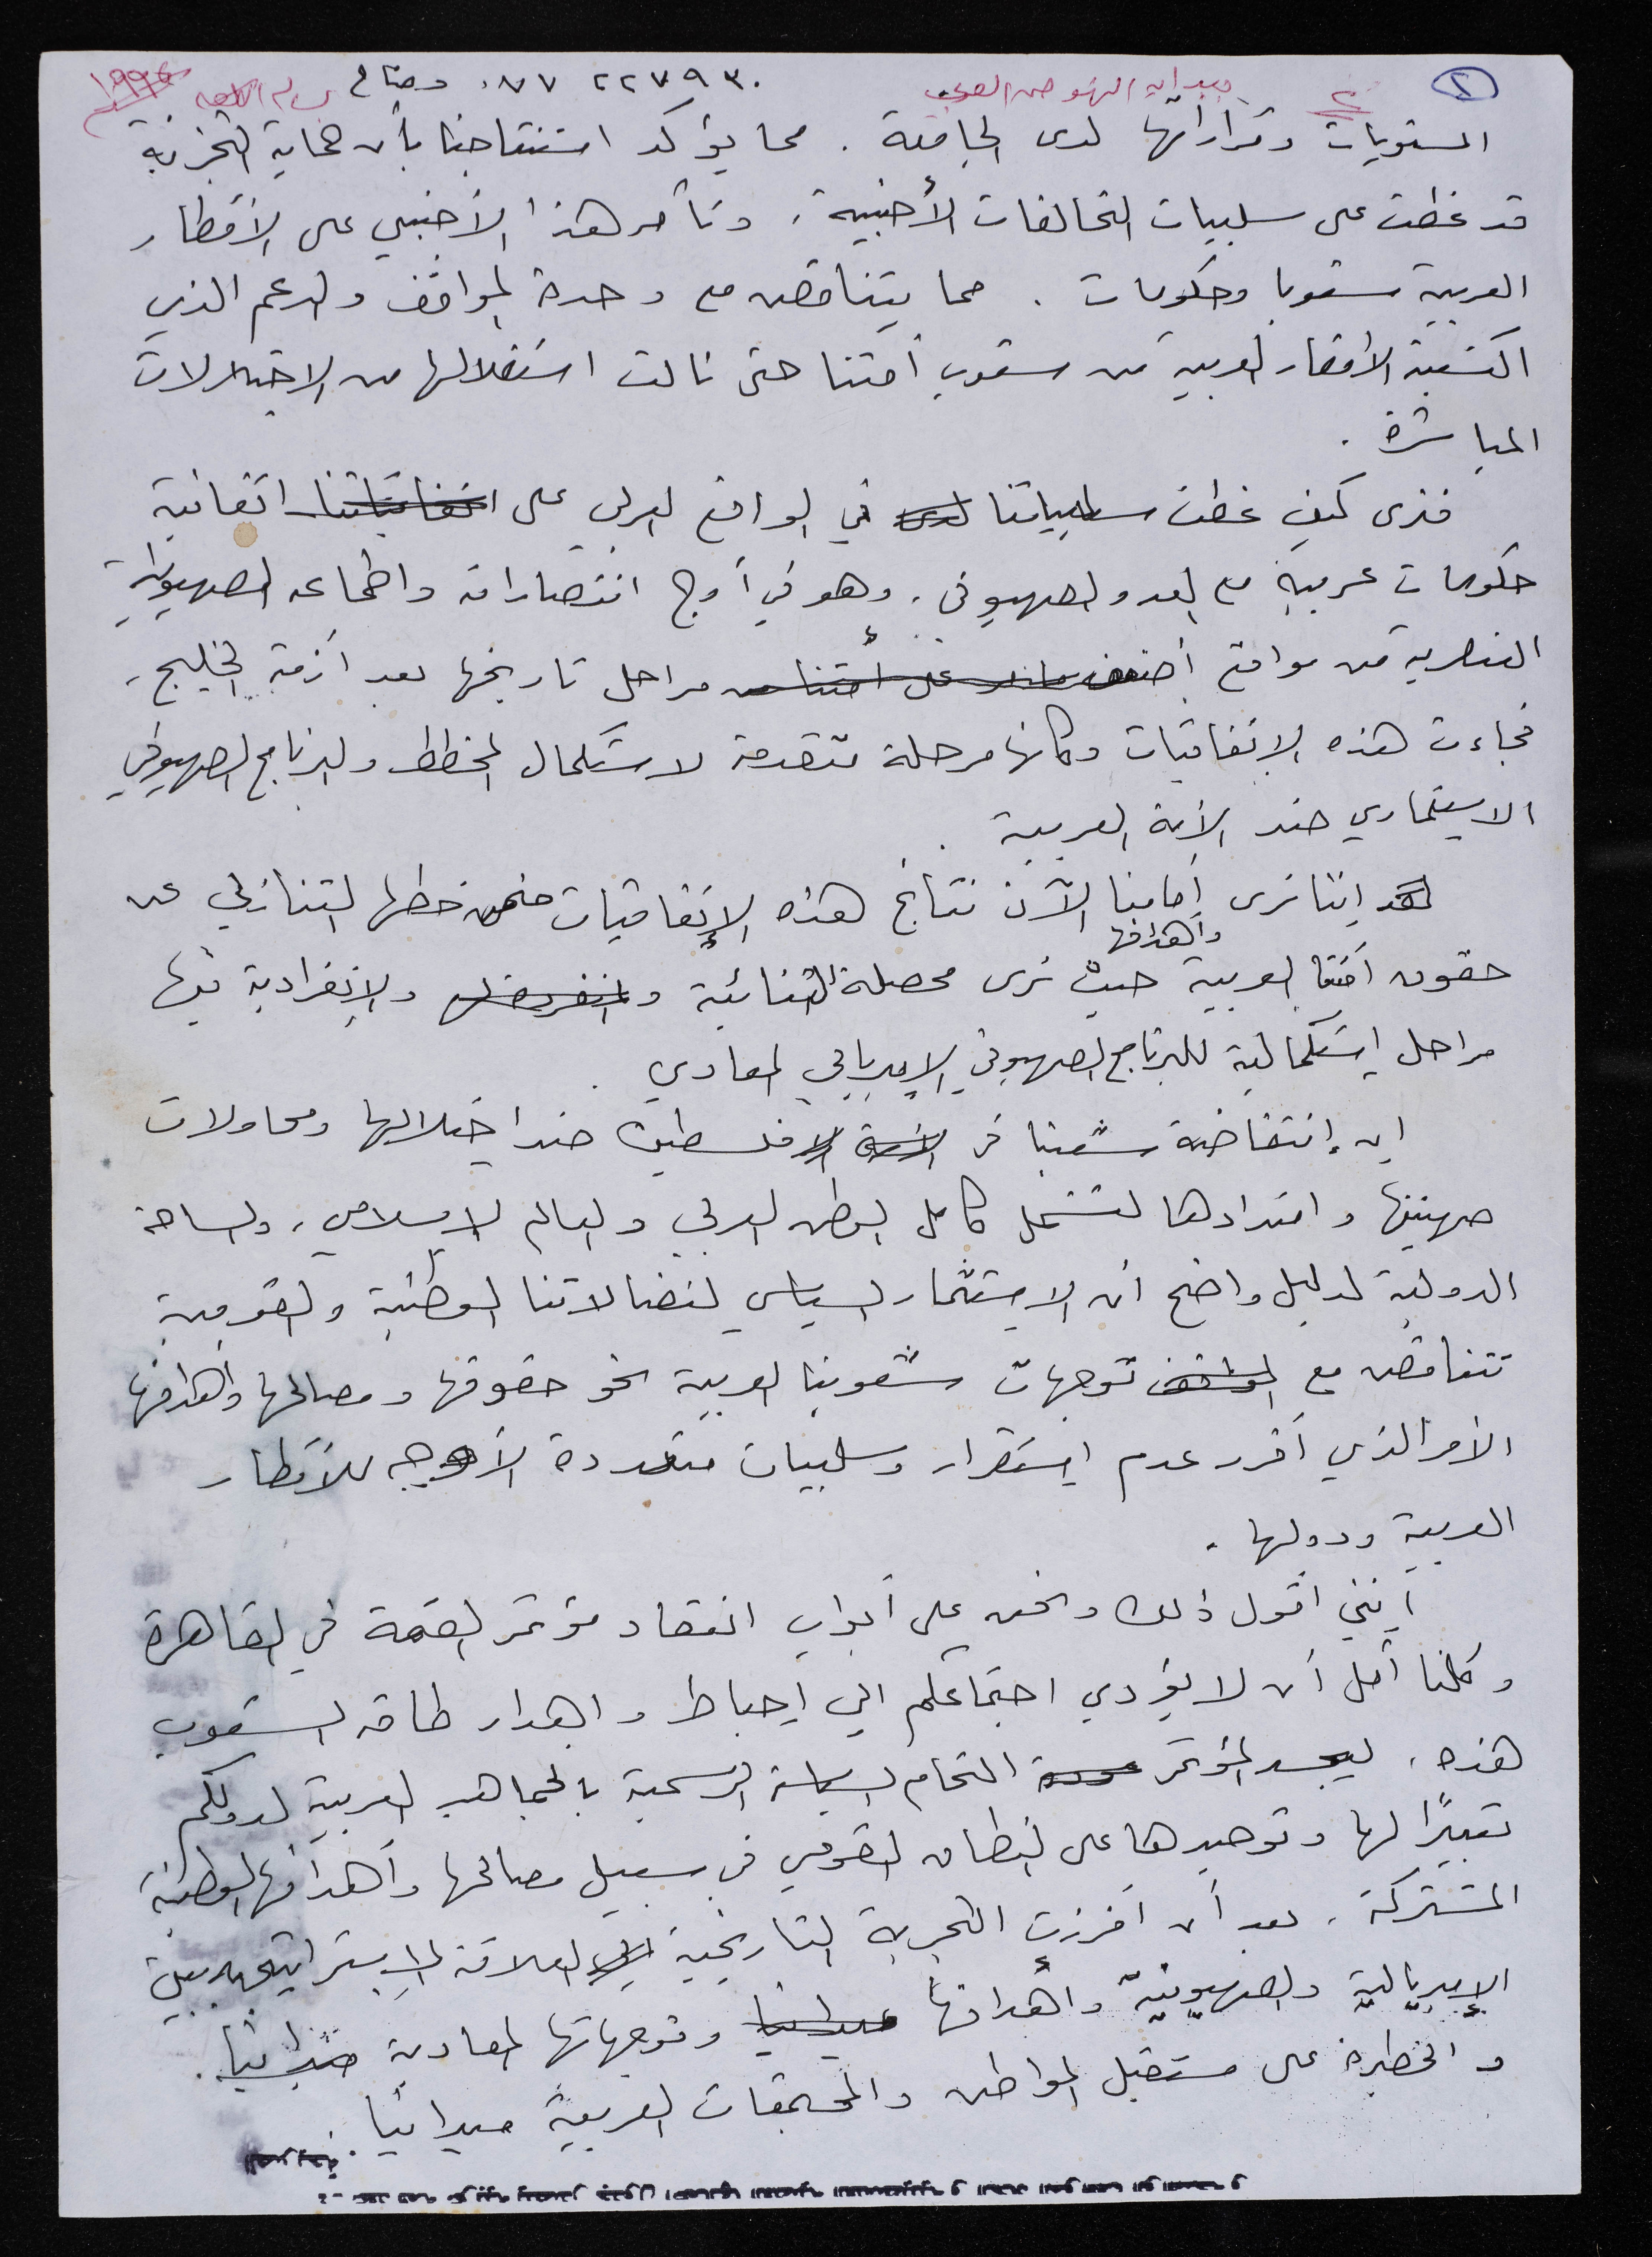 ٢
٢
٠٧٧ ٢٢٧٩٣٠
١٩٩٤
المستويات وقراراتها لدى الجامعة . مما يؤكد استنتاجنا بأن حماية التجزئة
قد غطت على سلبيات التحالفات الأجنبية ، وتآمر هذا الأجنبي على الأقطار
العربية شعوبا وحكومات . مما يتناقض مع وحدة المواقف والدعم الذي
اكتسبته الأقطار العربية من شعوب أمتنا حتى نالت استقلالها من الاحتلالات
المباشرة .
فنرى كيف غطت سلبياتنا في الواقع العربي على اتفاقية
حكومات عربية مع العدو الصهيوني . وهو في أوج انتصاراته واطماعه الصهيونية
العنصرية من مواقع أضعف مراحل تاريخها بعد أزمة الخليج ،
فجاءت هذه الاتفاقيات وكانها مرحلة متقدمة لاستكمال المخطط والبرنامج الصهيوني
الاستعماري ضد الأمة العربية .
إننا نرى أمامنا الآن نتائج هذه الإتفاقيات ضمن خطها التنازلي عن
وأهدافها
حقوق أمتنا العربية حيث نرى محصلة الثنائية والإنفرادية فيها
مراحل إستكمالية للبرنامج الصهيوني الإمبريالي المعادي .
ان إنتفاضة شعبنا في فلسطين ضد احتلالها ومحاولات
صهينتها وامتدادها لتشمل كامل الوطن العربي والعالم الإسلامي ، والساحة
الدولية لدليل واضح أن الاستثمار السياسي لنضالاتنا الوطنية والقومية
تتناقض مع توجهات شعوبنا العربية نحو حقوقها ومصالحها وأهدافها
الأمر الذي أفرز عدم إستقرار وسلبيات متعددة الأوجه للأقطار
العربية ودولها .
إنني اقول ذلك ونحن على أبواب انعقاد مؤتمر القمة في القاهرة
وكلنا أمل أن لا يؤدي اجتماعكم الى احباط واهدار طاقة الشعوب
هذه ، ليجسد المؤتمر التحام السياسة الرسمية بالجماهير العربية لدولكم
تعبيرًا لها وتوحيدها على النطاق القومي في سبيل مصالحها وأهدافها الوطنية
المشتركة . بعد أن أفرزت التجربة التاريخية العلاقة الإستراتيجية بين
الإمبريالية والصهيونية وأهدافها وتوجهاتها المعادية
والخطيرة على مستقبل المواطن والمجتمعات العربية ميدانيًا .